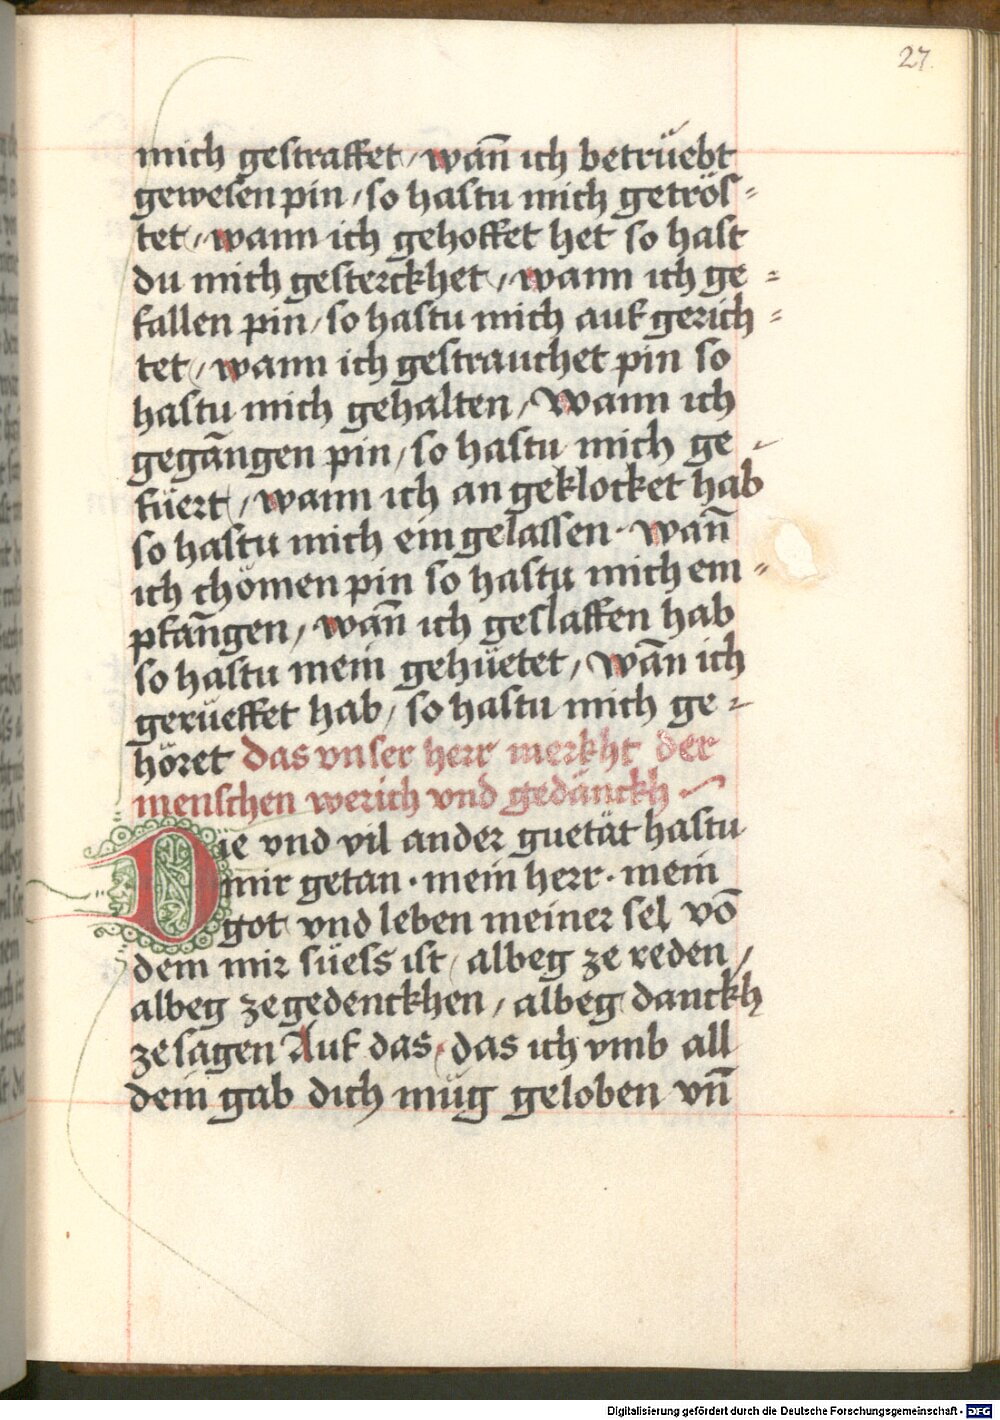 27.
mich gestraffet / wan̄ ich betrüebt
gewesen pin / so hastu mich getrös-
tet / wann ich gehoffet het so hast
du mich gesterckhet / wann ich ge-
fallen pin / so hastu mich auf gerich-
tet / wann ich gestrauchet pin so
hastu mich gehalten / Wann ich
gegān̄gen pin / so hastu mich ge-
füert / wann ich an geklocket hab
so hastu mich ein gelassen · wan̄
ich chömen pin so hastu mich em-
pfān̄gen / wan̄ ich geslaffen hab
so hastu mein gehüetet / wān ich
gerüeffet hab / so hastu mich ge-
höret das vnser herr merkht der
menschen werich vnd gedänckh
Die vnd vil ander guetät hastu
mir getan · mein herr · mein
got vnd leben meiner sel vō
dem mir süess ist / albeg ze reden /
albeg ze gedenckhen / albeg danckh
ze sagen Auf das / das ich vmb all
dein gab dich müg geloben vn̄
Digitalisierung gefördert durch die Deutsche Forschungsgemeinschaft - DFG